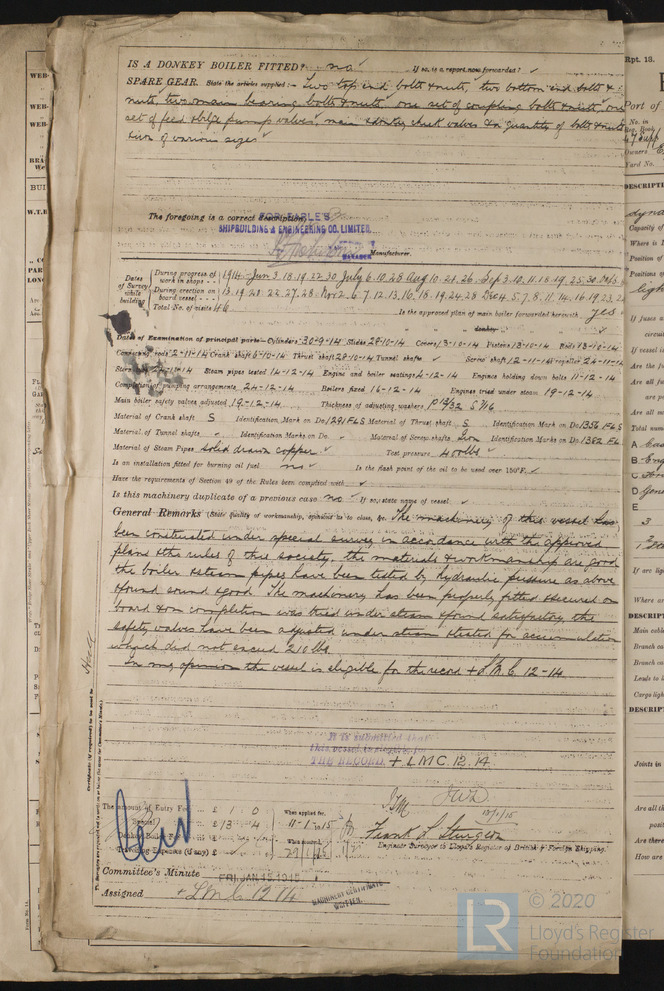 IS A DONKEY BOILER FITTED? no If so, is a report now forwarded?
SPARE GEAR. State the articles supplied:— Two top end bolts & nuts, two bottom end bolts &
nuts, two main bearing bolts & nuts, one set of coupling bolts & nuts, one
set of feed & bilge pump valves, main & check valves & a quantity of bolts & nuts
iron of various sizes
The foregoing is a correct description,
FOR EARLE'S
SHIPBUILDING & ENGINEERING CO. LIMITED.
MANAGER Manufacturer.
Dates of Survey while building
During progress of work in shops - - 1914. Jun 3. 18. 19. 22. 30 July 6. 10. 28 Aug 10. 21. 26. Sep 3. 10. 11. 18. 19. 25. 30. Oct 5.
During erection on board vessel - - - 13. 19. 21. 22. 27. 28. Nov 2. 6. 7. 12. 13. 16. 18. 19. 24. 28 Dec 4. 5. 7. 8. 11. 14. 16. 19. 23. 24
Total No. of visits 46 Is the approved plan of main boiler forwarded herewith yes
" " " donkey " " "
Dates of Examination of principal parts—Cylinders 30-9-14 Slides 28-10-14 Covers 13-10-14 Pistons 13-10-14 Rods 13-10-14
Connecting rods 2-11-14 Crank shaft 5-10-14 Thrust shaft 28-10-14 Tunnel shafts Screw shaft 12-11-14 Propeller 24-11-14
Stern tube 24-11-14 Steam pipes tested 14-12-14 Engine and boiler seatings 4-12-14 Engines holding down bolts 11-12-14
Completion of pumping arrangements 24-12-14 Boilers fixed 14-12-14 Engines tried under steam 19-12-14
Main boiler safety valves adjusted 19-12-14 Thickness of adjusting washers P 13/32 S 7/16
Material of Crank shaft S Identification Mark on Do. 1291 FLS Material of Thrust shaft S Identification Mark on Do. 1356 FLS
Material of Tunnel shafts Identification Marks on Do. Material of Screw shafts Iron Identification Marks on Do. 1382 FLS
Material of Steam Pipes Solid drawn copper Test pressure 400 lbs
Is an installation fitted for burning oil fuel no Is the flash point of the oil to be used over 150°F.
Have the requirements of Section 49 of the Rules been complied with
Is this machinery duplicate of a previous case no If so, state name of vessel
General Remarks (State quality of workmanship, opinions as to class, &c. The machinery of this vessel has
been constructed under special survey in accordance with the approved
plans & the rules of this society, the materials & workmanship are good
the boiler & steam pipes have been tested by hydraulic pressure as above
& found sound & good. The machinery has been properly fitted & secured on
board & on completion was tried under steam & found satisfactory the
safety valves have been adjusted under steam & tested for accumulation
which did not exceed 210 lbs.
In my opinion the vessel is eligible for the record + LMC 12-14.
It is submitted that
this vessel is eligible for
THE RECORD. + LMC. 12. 14
JWD
The amount of Entry Fee £ 1 : 0 When applied for,
Special £ 13 : 4 11-1-1915
Donkey Boiler Fee £ When received,
Travelling Expenses (if any) £
Frank L. Sturgeon
Engineer Surveyor to Lloyd's Register of British & Foreign Shipping.
Committee's Minute FRI. JAN. 15. 1915
Assigned + LMC 12 14
MACHINERY CERTIFICATE
WRITTEN.
Hull
Rpt. 13.
Port of
© 2020
Lloyd's Register
Foundation
LR